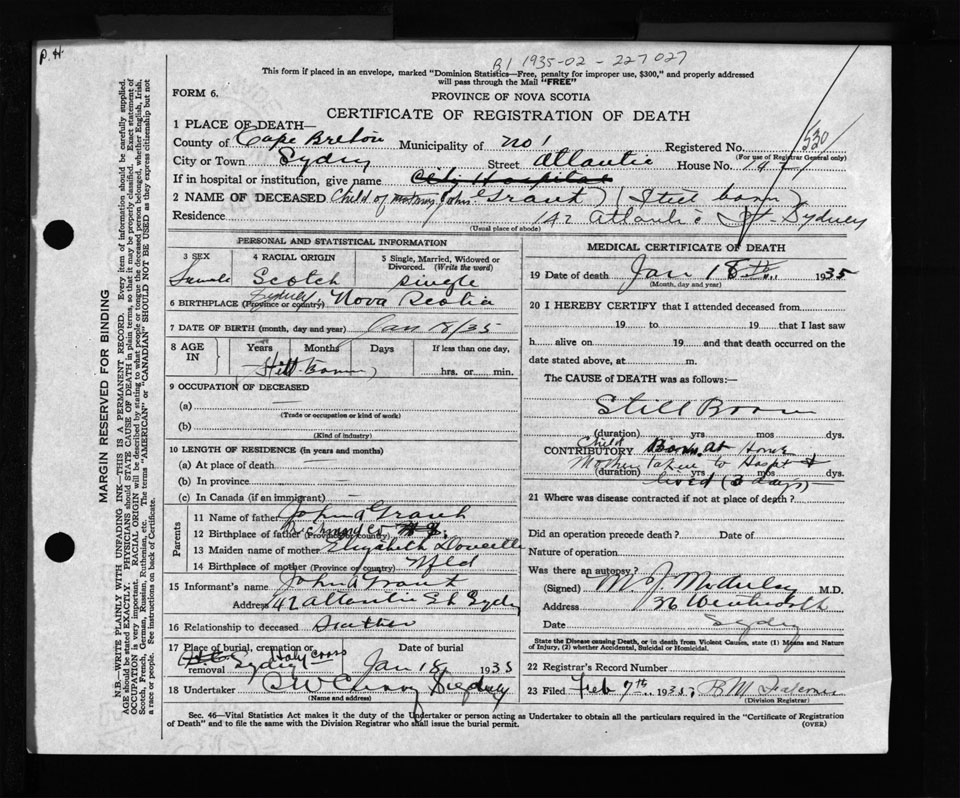 P. H.
B1 1935-02-227027
This form if placed in an envelope, marked "Dominion Statistics—Free, penalty for improper use, $300," and properly addressed
will pass through the Mail "FREE"
FORM 6.
PROVINCE OF NOVA SCOTIA
CERTIFICATE OF REGISTRATION OF DEATH
1 PLACE OF DEATH—
County of Cape Breton Municipality of No 1 Registered No. 530
(For use of Registrar General only)
City or Town Sydney Street Atlantic House No. 142
If in hospital or institution, give name City Hospital
2 NAME OF DECEASED Child of John Grant (Still born)
Residence 142 Atlantic St. Sydney
(Usual place of abode)
PERSONAL AND STATISTICAL INFORMATION
3 SEX 4 RACIAL ORIGIN 5 Single, Married, Widowed or Divorced. (Write the word)
Female Scotch single
6 BIRTHPLACE (Province or country) Sydney, Nova Scotia
7 DATE OF BIRTH (month, day and year) Jan 18/35
8 AGE IN Years Months Days If less than one day,
Still-Born hrs. or min.
9 OCCUPATION OF DECEASED —
(a)
(Trade or occupation or kind of work)
(b)
(Kind of industry)
10 LENGTH OF RESIDENCE (in years and months)
(a) At place of death —
(b) In province —
(c) In Canada (if an immigrant) —
Parents
11 Name of father John A Grant
12 Birthplace of father (Province or country)
13 Maiden name of mother Elizabeth
14 Birthplace of mother (Province or country) Nfld
15 Informant's name John A Grant
Address 142 Atlantic St Sydney
16 Relationship to deceased Father
17 Place of burial, cremation or removal Date of burial
Holy Cross Sydney Jan 18 1935
18 Undertaker Sydney
(Name and address)
MEDICAL CERTIFICATE OF DEATH
19 Date of death Jan 18th 1935
(Month, day and year)
20 I HEREBY CERTIFY that I attended deceased from
19 to 19 that I last saw
h alive on 19 and that death occurred on the
date stated above, at m.
The CAUSE of DEATH was as follows:—
Still Born
(duration) yrs mos dys.
CONTRIBUTORY Child Born at Home
Mother taken to Hospt &
(duration) yrs mos dys.
lived (3 days)
21 Where was disease contracted if not at place of death?
Did an operation precede death? Date of
Nature of operation
Was there an autopsy?
(Signed) M. J. M.D.
Address 36 Wentworth
Date Sydney
State the Disease causing Death, or in death from Violent Causes, state (1) Means and Nature
of Injury, (2) whether Accidental, Suicidal or Homicidal.
22 Registrar's Record Number
23 Filed Feb 7th 1935
(Division Registrar)
Sec. 46—Vital Statistics Act makes it the duty of the Undertaker or person acting as Undertaker to obtain all the particulars required in the "Certificate of Registration
of Death" and to file the same with the Division Registrar who shall issue the burial permit.
MARGIN RESERVED FOR BINDING
N.B.—WRITE PLAINLY WITH UNFADING INK—THIS IS A PERMANENT RECORD. Every item of information should be carefully supplied.
AGE should be stated EXACTLY. PHYSICIANS should STATE CAUSE OF DEATH in plain terms, so that it may be properly classified. Exact statement of
OCCUPATION is very important. RACIAL ORIGIN will be described by stating to what people or tongue the deceased person belonged, whether English, Irish,
Scotch, French, German, Russian, Ruthenian, etc. The terms "AMERICAN" or "CANADIAN" SHOULD NOT BE USED as they express citizenship but not
a race or people. See instructions on back of Certificate.